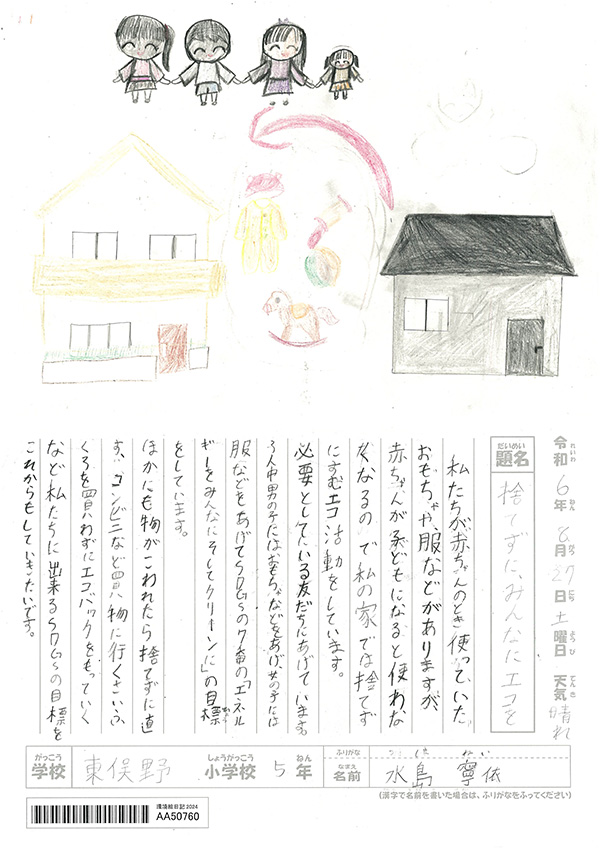 令和6年8月27日土曜日 天気 晴れ
題名 捨てずに、みんなにエコを
私たちが赤ちゃんのとき使っていた
おもちゃや、服などがありますが、
赤ちゃんが子どもになると使わな
くなるので私の家では捨てず
にすむエコ活動をしています。
必要としている友だちにあげています。
3人中男の子にはおもちゃなどをあげ、女の子には
服などをあげてSDGsの7番の「エネル
ギーをみんなにそしてクリーンに」の目標
をしています。
ほかにも物がこわれたら捨てずに直
す、コンビニなど買い物に行くさいふ
くろを買わずにエコバックをもっていく
など私たちに出来るSDGsの目標を
これからもしていきたいです。
学校 東俣野 小学校 5年 名前 水島寧依
(漢字で名前を書いた場合は、ふりがなをふってください)
環境絵日記2024
AA50760